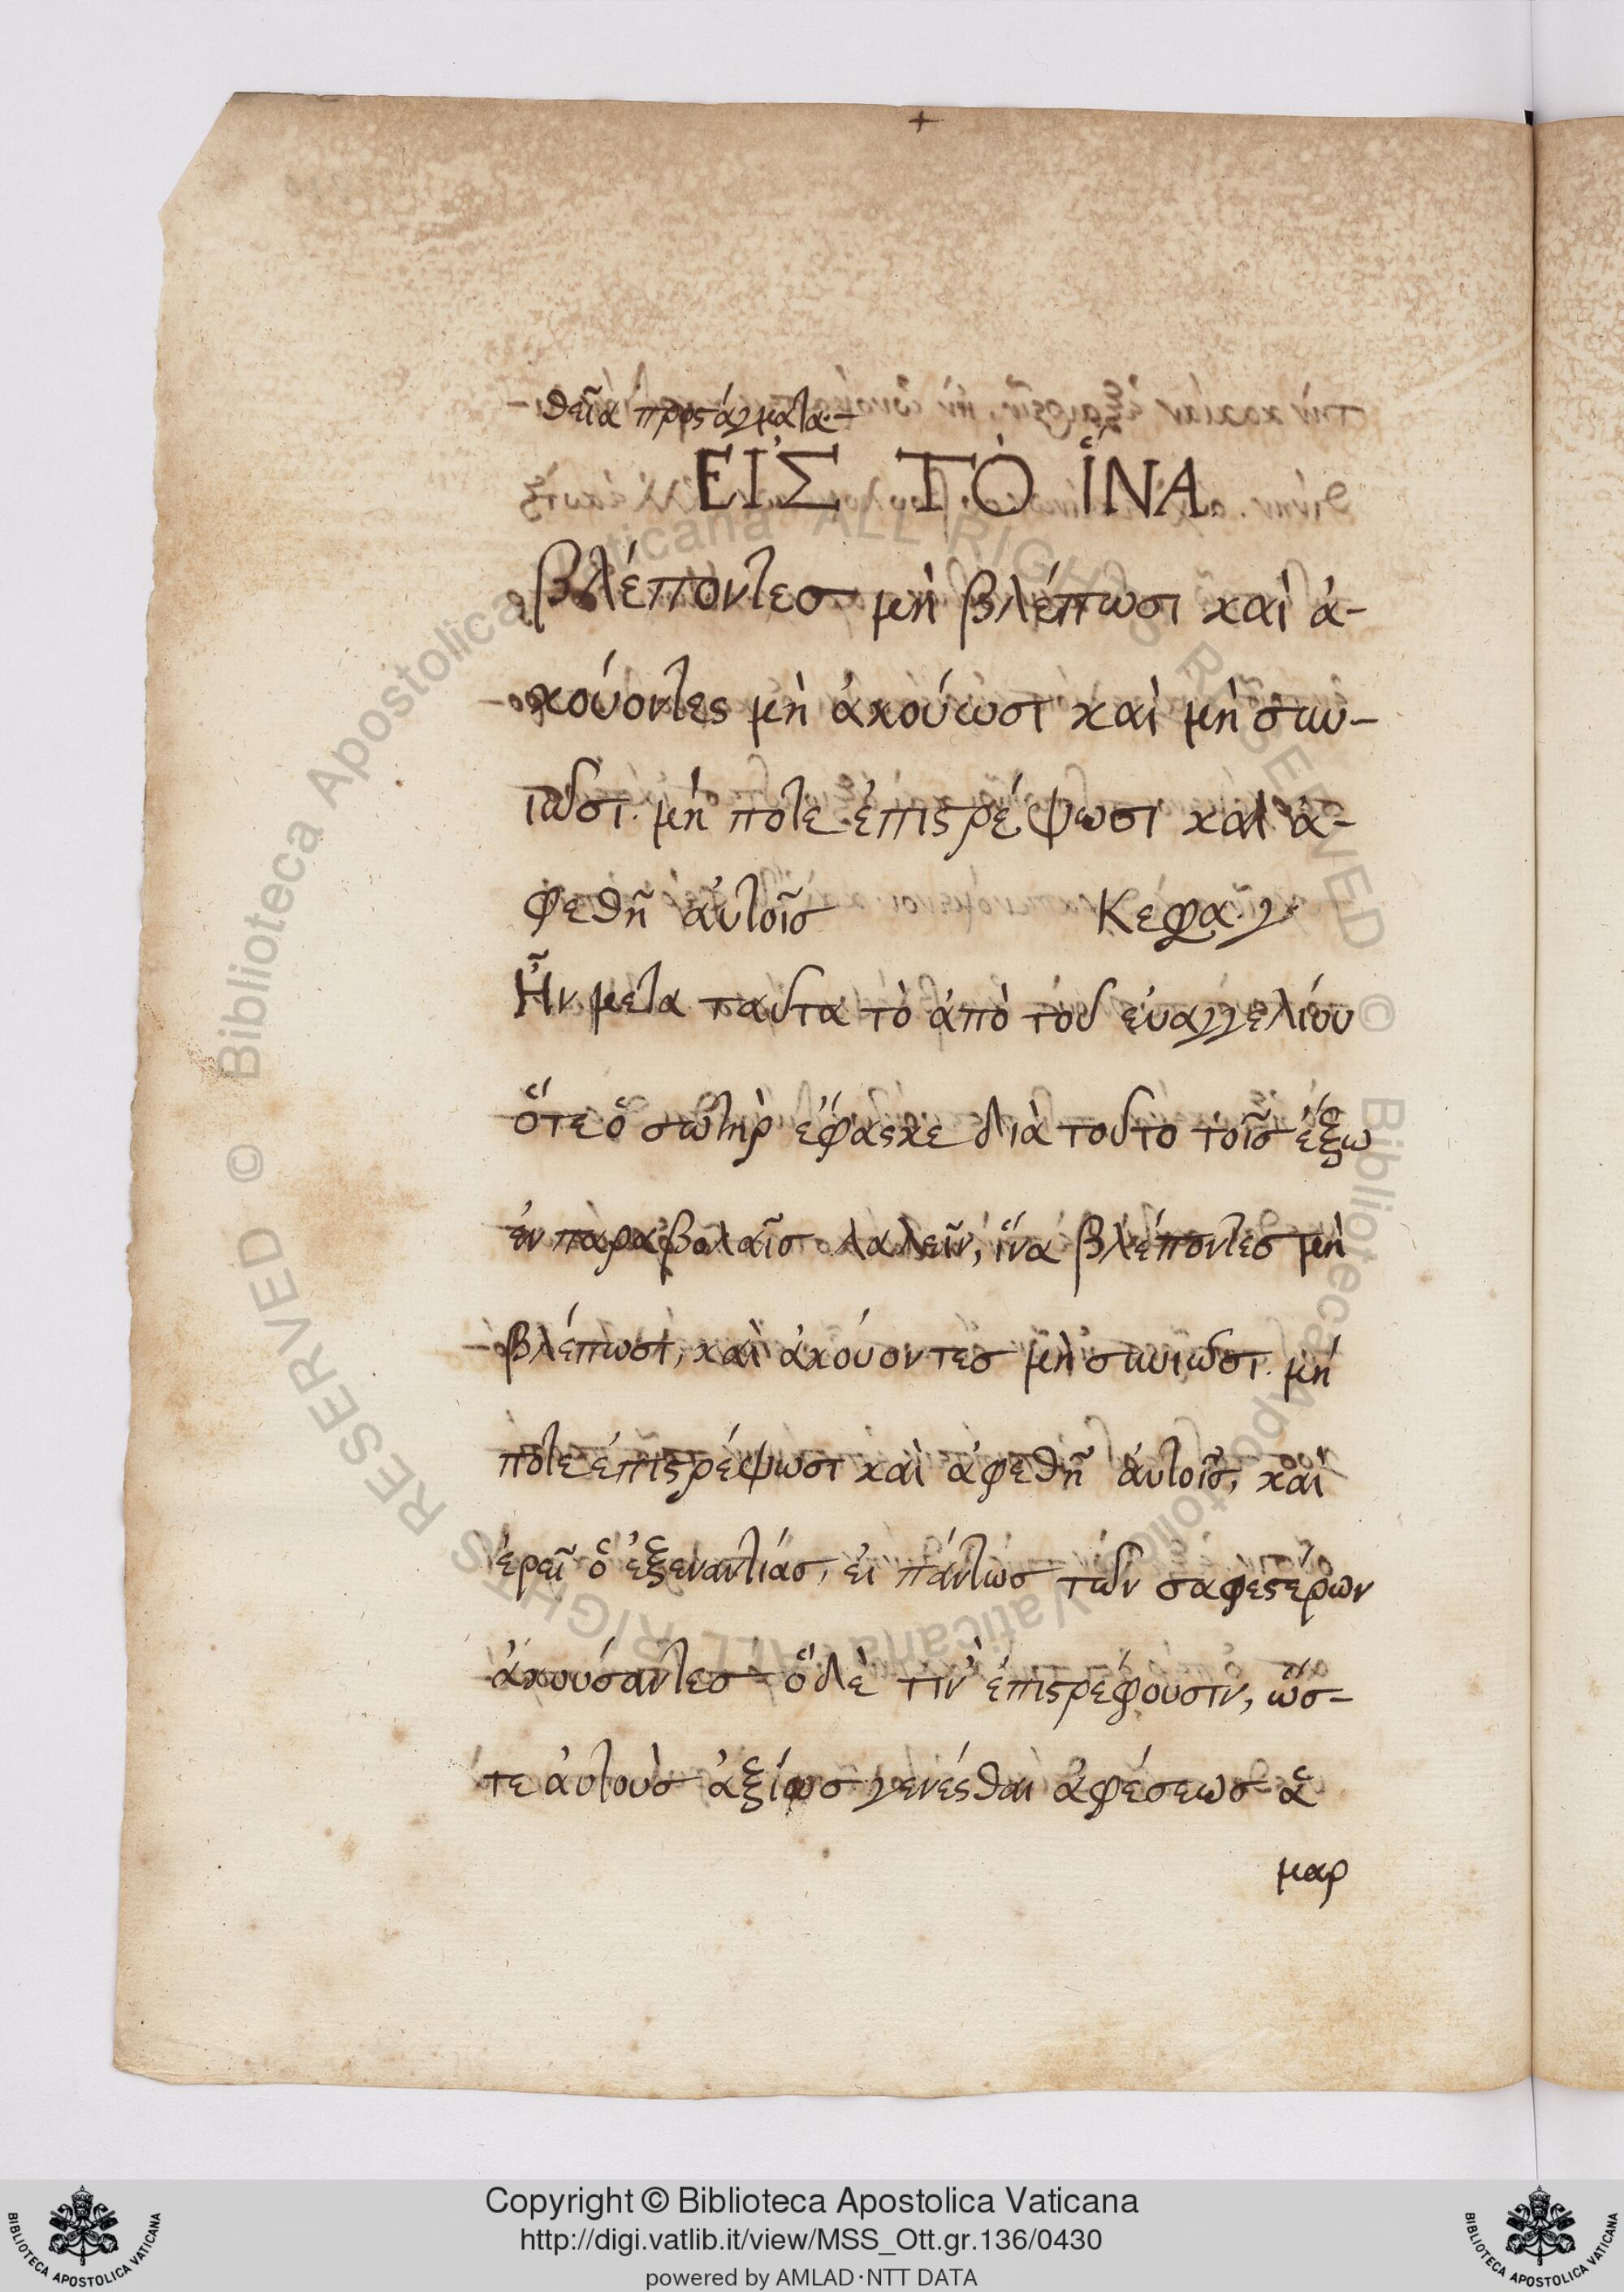 +
θεῖα προστάγματα·–
ΕἸΣ ΤῸ ἽΝΑ
βλέποντεσ μὴ βλέπωσι καὶ ἀ-
κούοντες μὴ ἀκούωσι καὶ μὴ συν-
ιῶσι. μή ποτε ἐπιστρέψωσι καὶ ἀ-
φεθῇ αὐτοῖσ Κεφα. γ·
Ἦν μετα ταῦτα τὸ ἀπὸ τοῦ εὐαγγελίου
ὅτε ὁ σωτὴρ ἔφασκε διὰ τοῦτο τοῖσ ἔξω
ἐν παραβολαῖσ λαλεῖν, ἵνα βλέποντεσ μὴ
βλέπωσι, καὶ ἀκούοντεσ μὴ συνιῶσι. μή
ποτε ἐπιστρέψωσι καὶ ἀφεθῇ αὐτοῖσ, καὶ
ἐρεῖ ὁ ἐξεναντίασ, εἰ πάντωσ τῶν σαφεστέρων
ἀκούσαντεσ ὅδὲ τιν ἐπιστρέφουσιν, ὥσ-
τε ἀυτοὺσ ἀξίουσ γενέσθαι ἀφέσεωσ ἁ
μαρ
© Biblioteca Apostolica Vaticana ALL RIGHTS RESERVED © Biblioteca Apostolica Vaticana ALL RIGHTS RESERVED
Copyright © Biblioteca Apostolica Vaticana
http://digi.vatlib.it/view/MSS_Ott.gr.136/0430
powered by AMLAD·NTT DATA
BIBLIOTECA APOSTOLICA VATICANA
BIBLIOTECA APOSTOLICA VATICANA